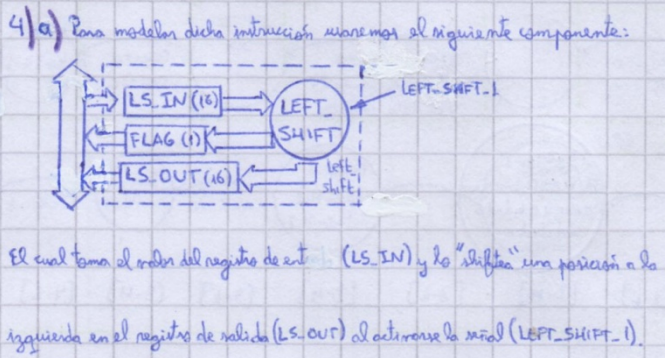 4) a) Para modelar dicha instrucción usaremos el siguiente componente:
LS_IN (16)
LEFT_
SHIFT
LEFT_SHIFT_1
FLAG (1)
LS_OUT (16)
left_
shift
El cual toma el valor del registro de ent (LS_IN) y lo "shiftea" una posición a la
izquierda en el registro de salida (LS_OUT) al activarse la señal (LEFT_SHIFT_1).